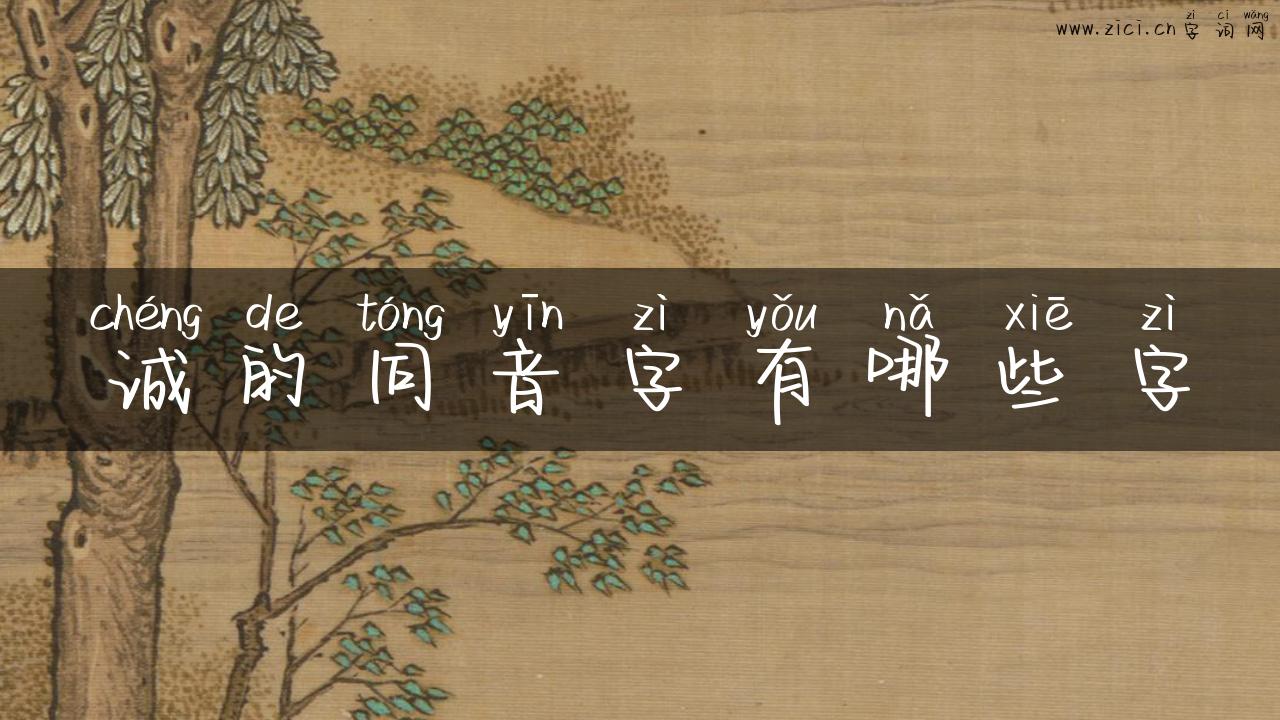 zì cí wǎng
www.zici.cn 字词网
chéng de tóng yīn zì yǒu nǎ xiē zì
诚的同音字有哪些字